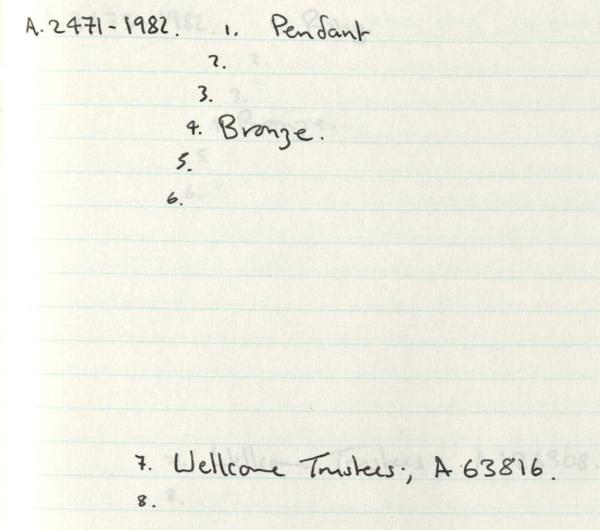 A.2471-1982. 1. Pendant
2.
3.
4. Bronze.
5.
6.
7. Wellcome Trustees; A 63816.
8.